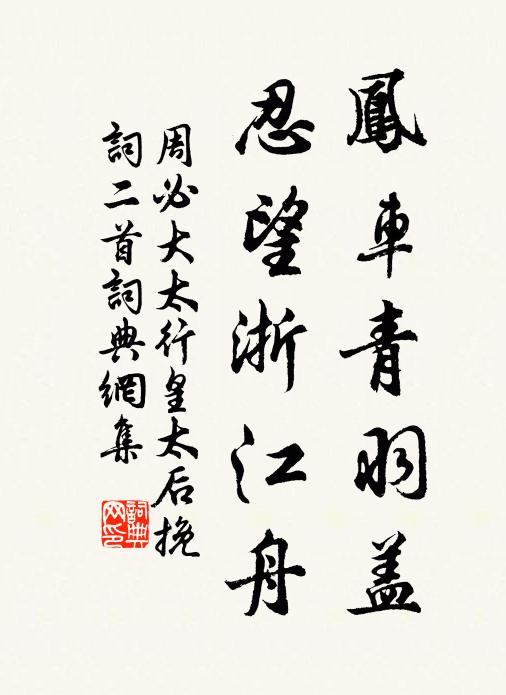 鳳車青羽蓋
忍望浙江舟
周必大太行皇太后挽
詞二首詞典網集
詞典
网印